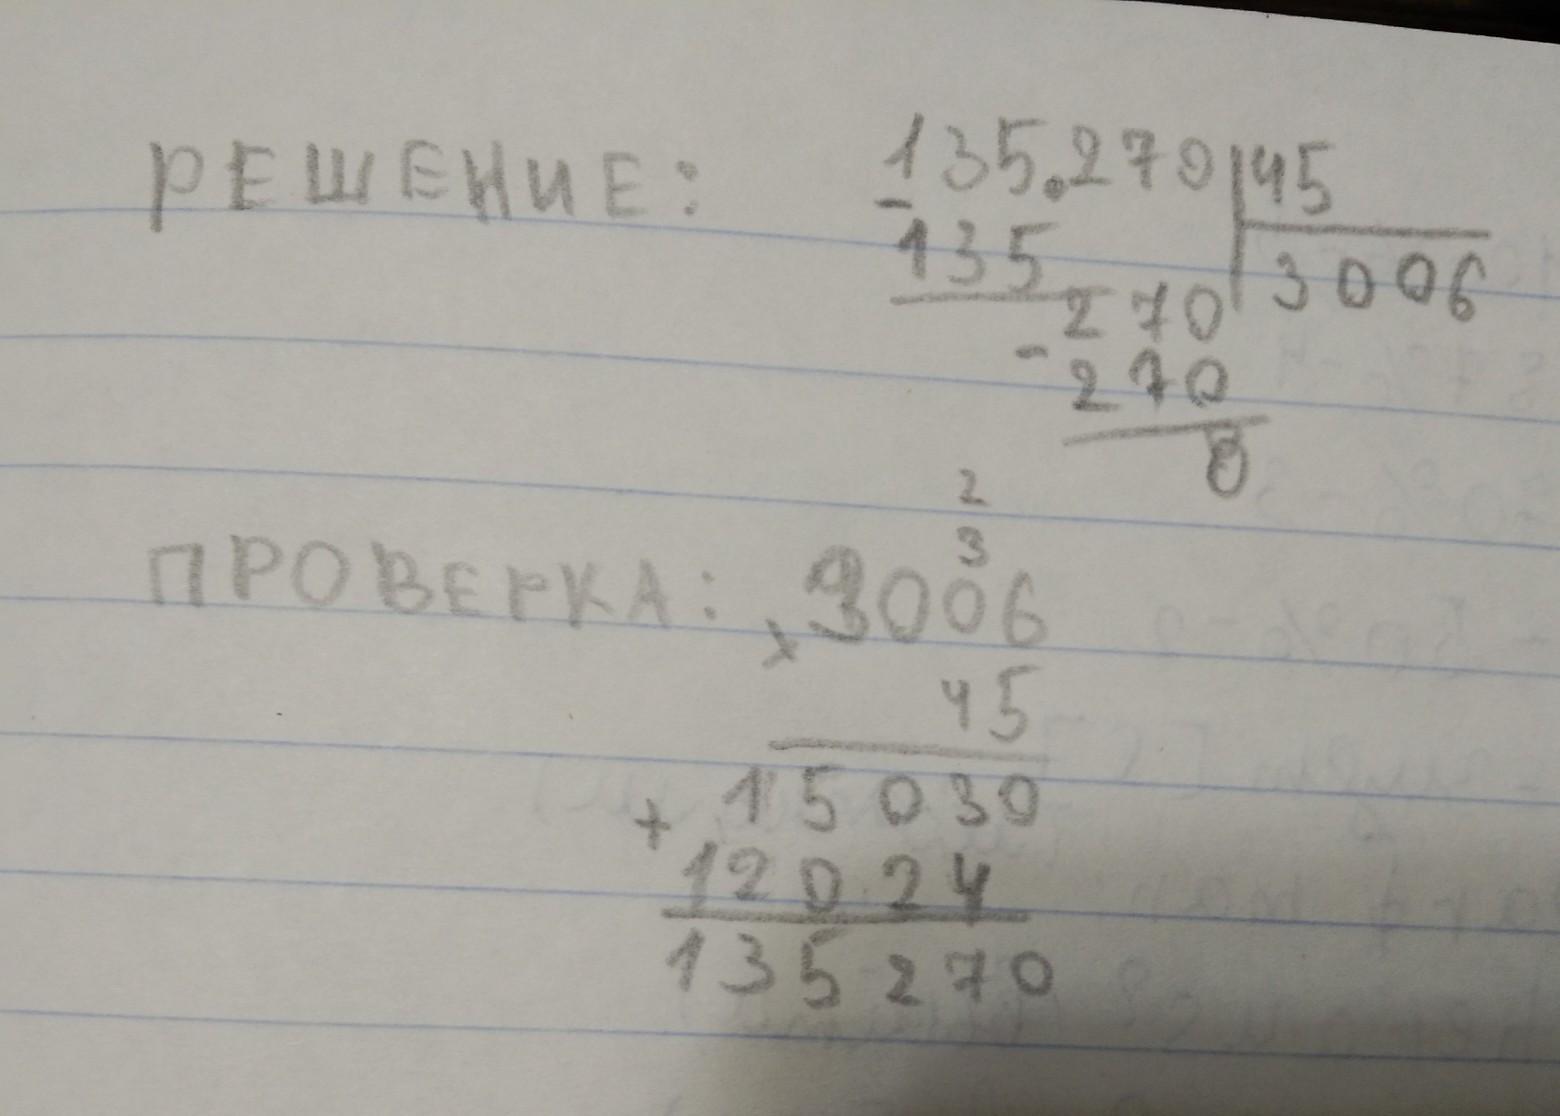 РЕШЕНИЕ: 135.270 45
- 135 3006
270
- 270
0
2
3
ПРОВЕРКА: x 3006
45
+ 15030
12024
135270